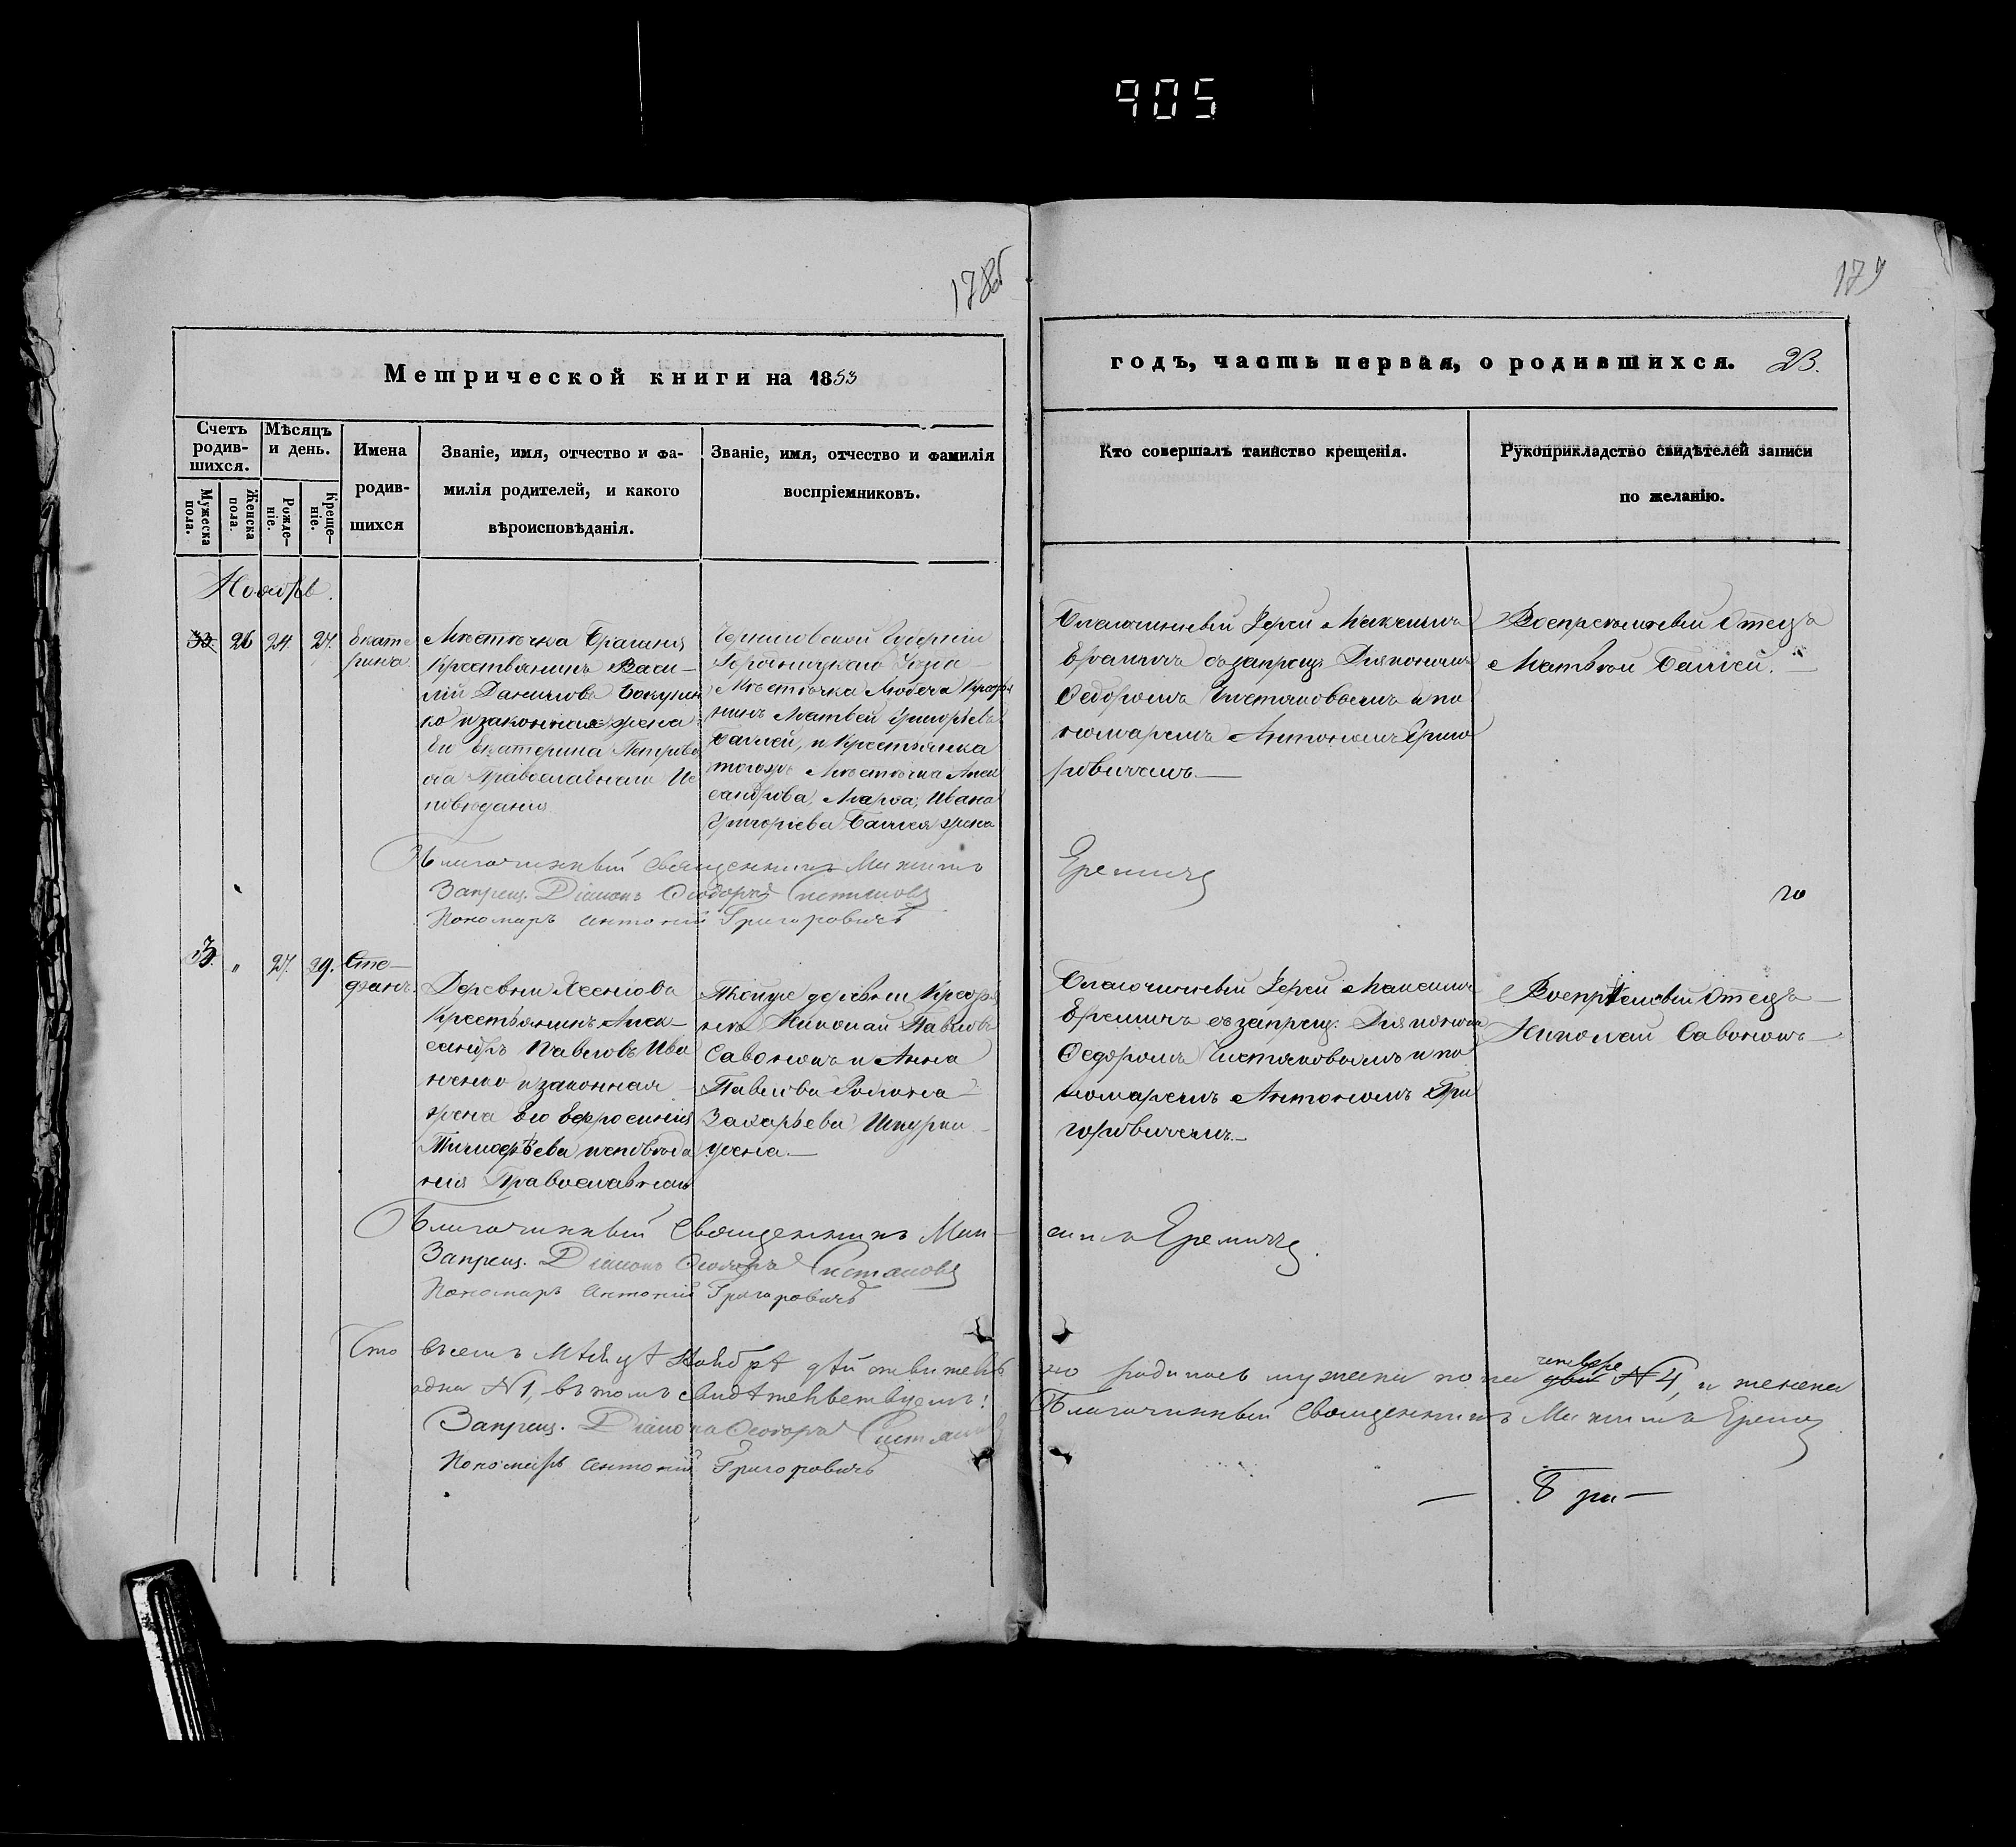 905
178об
179
Метрической книги на 1853
годъ, часть первая, о родившихся. 23.
Счетъ родив-шихся.
Мужеска пола.
Женска пола.
Мѣсяцъ и день.
Рожде-ніе.
Креще-ніе.
Имена
родив-
шихся
Званіе, имя, отчество и фа-
милія родителей, и какого
вѣроисповѣданія.
Званіе, имя, отчество и фамилія
воспріемниковъ.
Кто совершалъ таинство крещенія.
Рукоприкладство свидѣтелей записи
по желанію.
Ноябрь.
33. 26 24. 27.
Екате
рина
Мѣстечка Брагиня
Крестьянинъ Васи-
лій Даниловъ
ко и законная жена
Его Екатерина Петрова
оба Православнаго Ис
повѣданія
Черниговской Губерніи
Городницкаго Уѣзда
Мѣстечка Любеча Крестья
нинъ Матвей Григорьевъ
и Крестьянка
тогожъ Мѣстечка Алек
сандрова, Марфа, Ивана
Григоріева жена
Благочинный Іерей Максимъ
Еремичъ съ запрещ. Діякономъ
Федоромъ Чистяковымъ и по
номаремъ Антоніемъ Григо
ровичемъ.—
Воспріемный Отецъ
Матвей
Благочинный Священникъ Максимъ
Еремичъ
Запрещ. Діаконъ Феодоръ Чистяковъ
Пономарь Антоній Григоровичъ
27. 29.
Сте-
фанъ.
Деревни
Крестьянинъ Алек-
сандръ Павловъ Ива
ненко и законная
жена Его Евфросинія
Тимоѳѣева исповѣда
нія Православнаго
Тойже деревни Крестья
нинъ Николай Павловъ
Савонюкъ и Анна
Павлова Романа
Захарьева
жена.—
Благочинный Іерей Максимъ
Еремичъ съ запрещ. Діякономъ
Федоромъ Чистяковымъ и по
номаремъ Антоніемъ Гри
горовичемъ.—
Воспріемный Отецъ—
Николай Савонюкъ—
Благочинный Священникъ Мак-
симъ Еремичъ.
Запрещ. Діаконъ Феодоръ Чистяковъ
Пономарь Антоній Григоровичъ
Что въ семъ Мѣсяцѣ Ноябрѣ дѣйствитель
но родилось мужеска пола четыре двои № 4, и женска
одна №1, въ томъ свидѣтельствуемъ!
Благочинный Священникъ Максимъ Еремичъ
Запрещ. Діаконъ Феодоръ Чистяковъ
Пономарь Антоній Григоровичъ